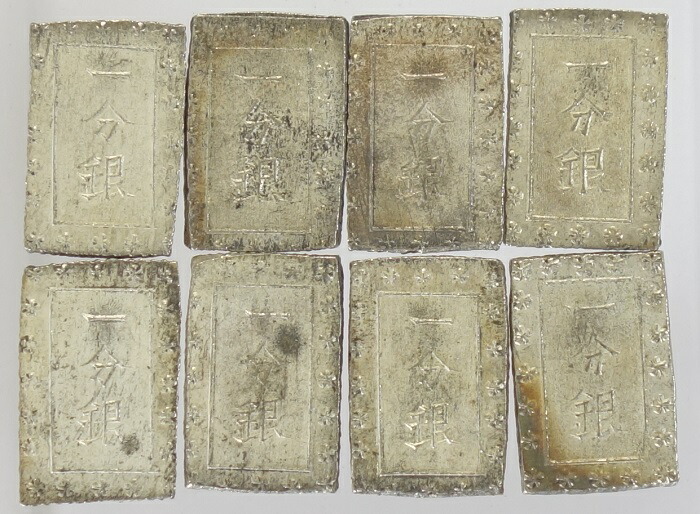 一分銀
一分銀
一分銀
一分銀
一分銀
一分銀
一分銀
一分銀